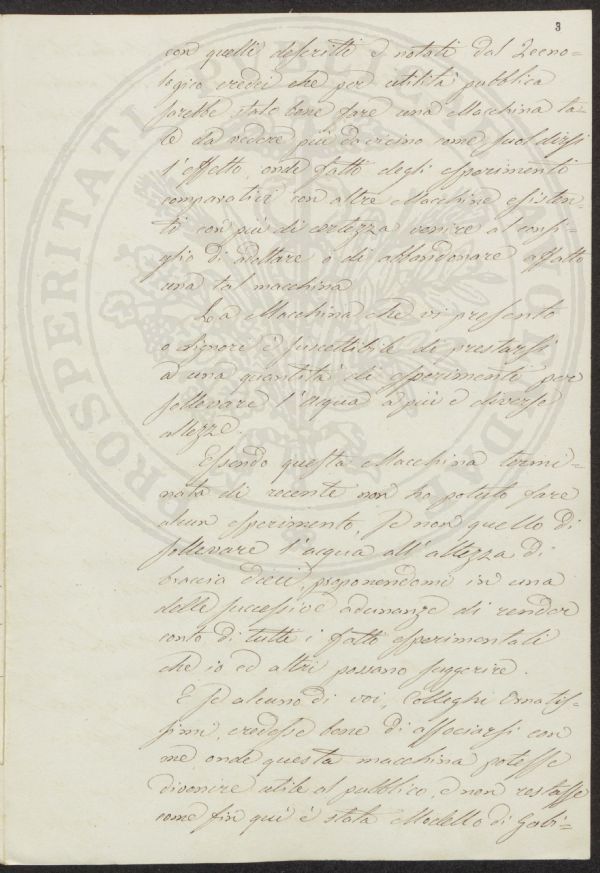 3
con quelli descritti e notati dal Tecno=
logico credei che per utilità pubblica
sarebbe stato bene fare una Macchina ta=
le da vedere più da vicino come suol dirsi
l'effetto, onde fatto degli esperimenti
comparativi con altre Macchine esisten=
ti con più di certezza venire al consi=
glio di adottare o di abbandonare affatto
una tal macchina
La Macchina che vi presento
o Signori è suscettibile di prestarsi
a una quantità di esperimenti per
sollevare l'acqua a più e diverse
altezze
Essendo questa Macchina termi=
nata di recente non ho potuto fare
alcun esperimento, se non quello di
sollevare l'acqua all'altezza di
braccia dieci, proponendomi in una
delle successive adunanze di render
conto di tutti i fatti esperimentali
che io ed altri possano suggerire.
E se alcuno di voi, Colleghi Ornatis=
simi, credesse bene di associarsi con
me, onde questa macchina potesse
divenire utile al pubblico, e non restasse
come fin qui è stata Modello di Gabi=
PROSPERITATI PUBLICAE